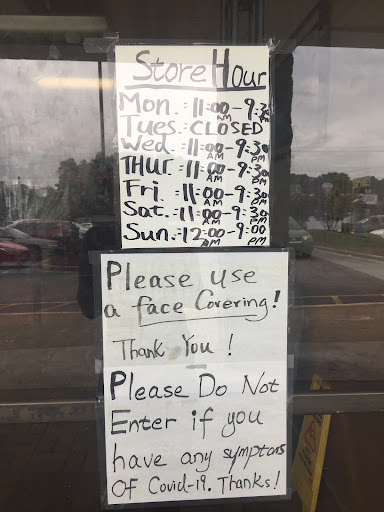 Store Hour
Mon. : 11:00 AM - 9:30 PM
Tues. : CLOSED
Wed. : 11:00 AM - 9:30 PM
THUr. : 11:00 AM - 9:30 PM
Fri. : 11:00 AM - 9:30 PM
Sat. : 11:00 AM - 9:30 PM
Sun. : 12:00 PM - 9:00 PM
Please use
a face Covering!
Thank You!
Please Do Not
Enter if you
have any symptoms
Of Covid-19. Thanks!